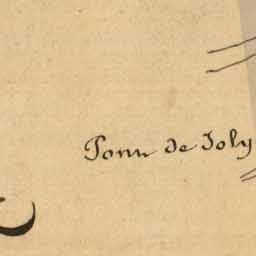 Pour de Joly